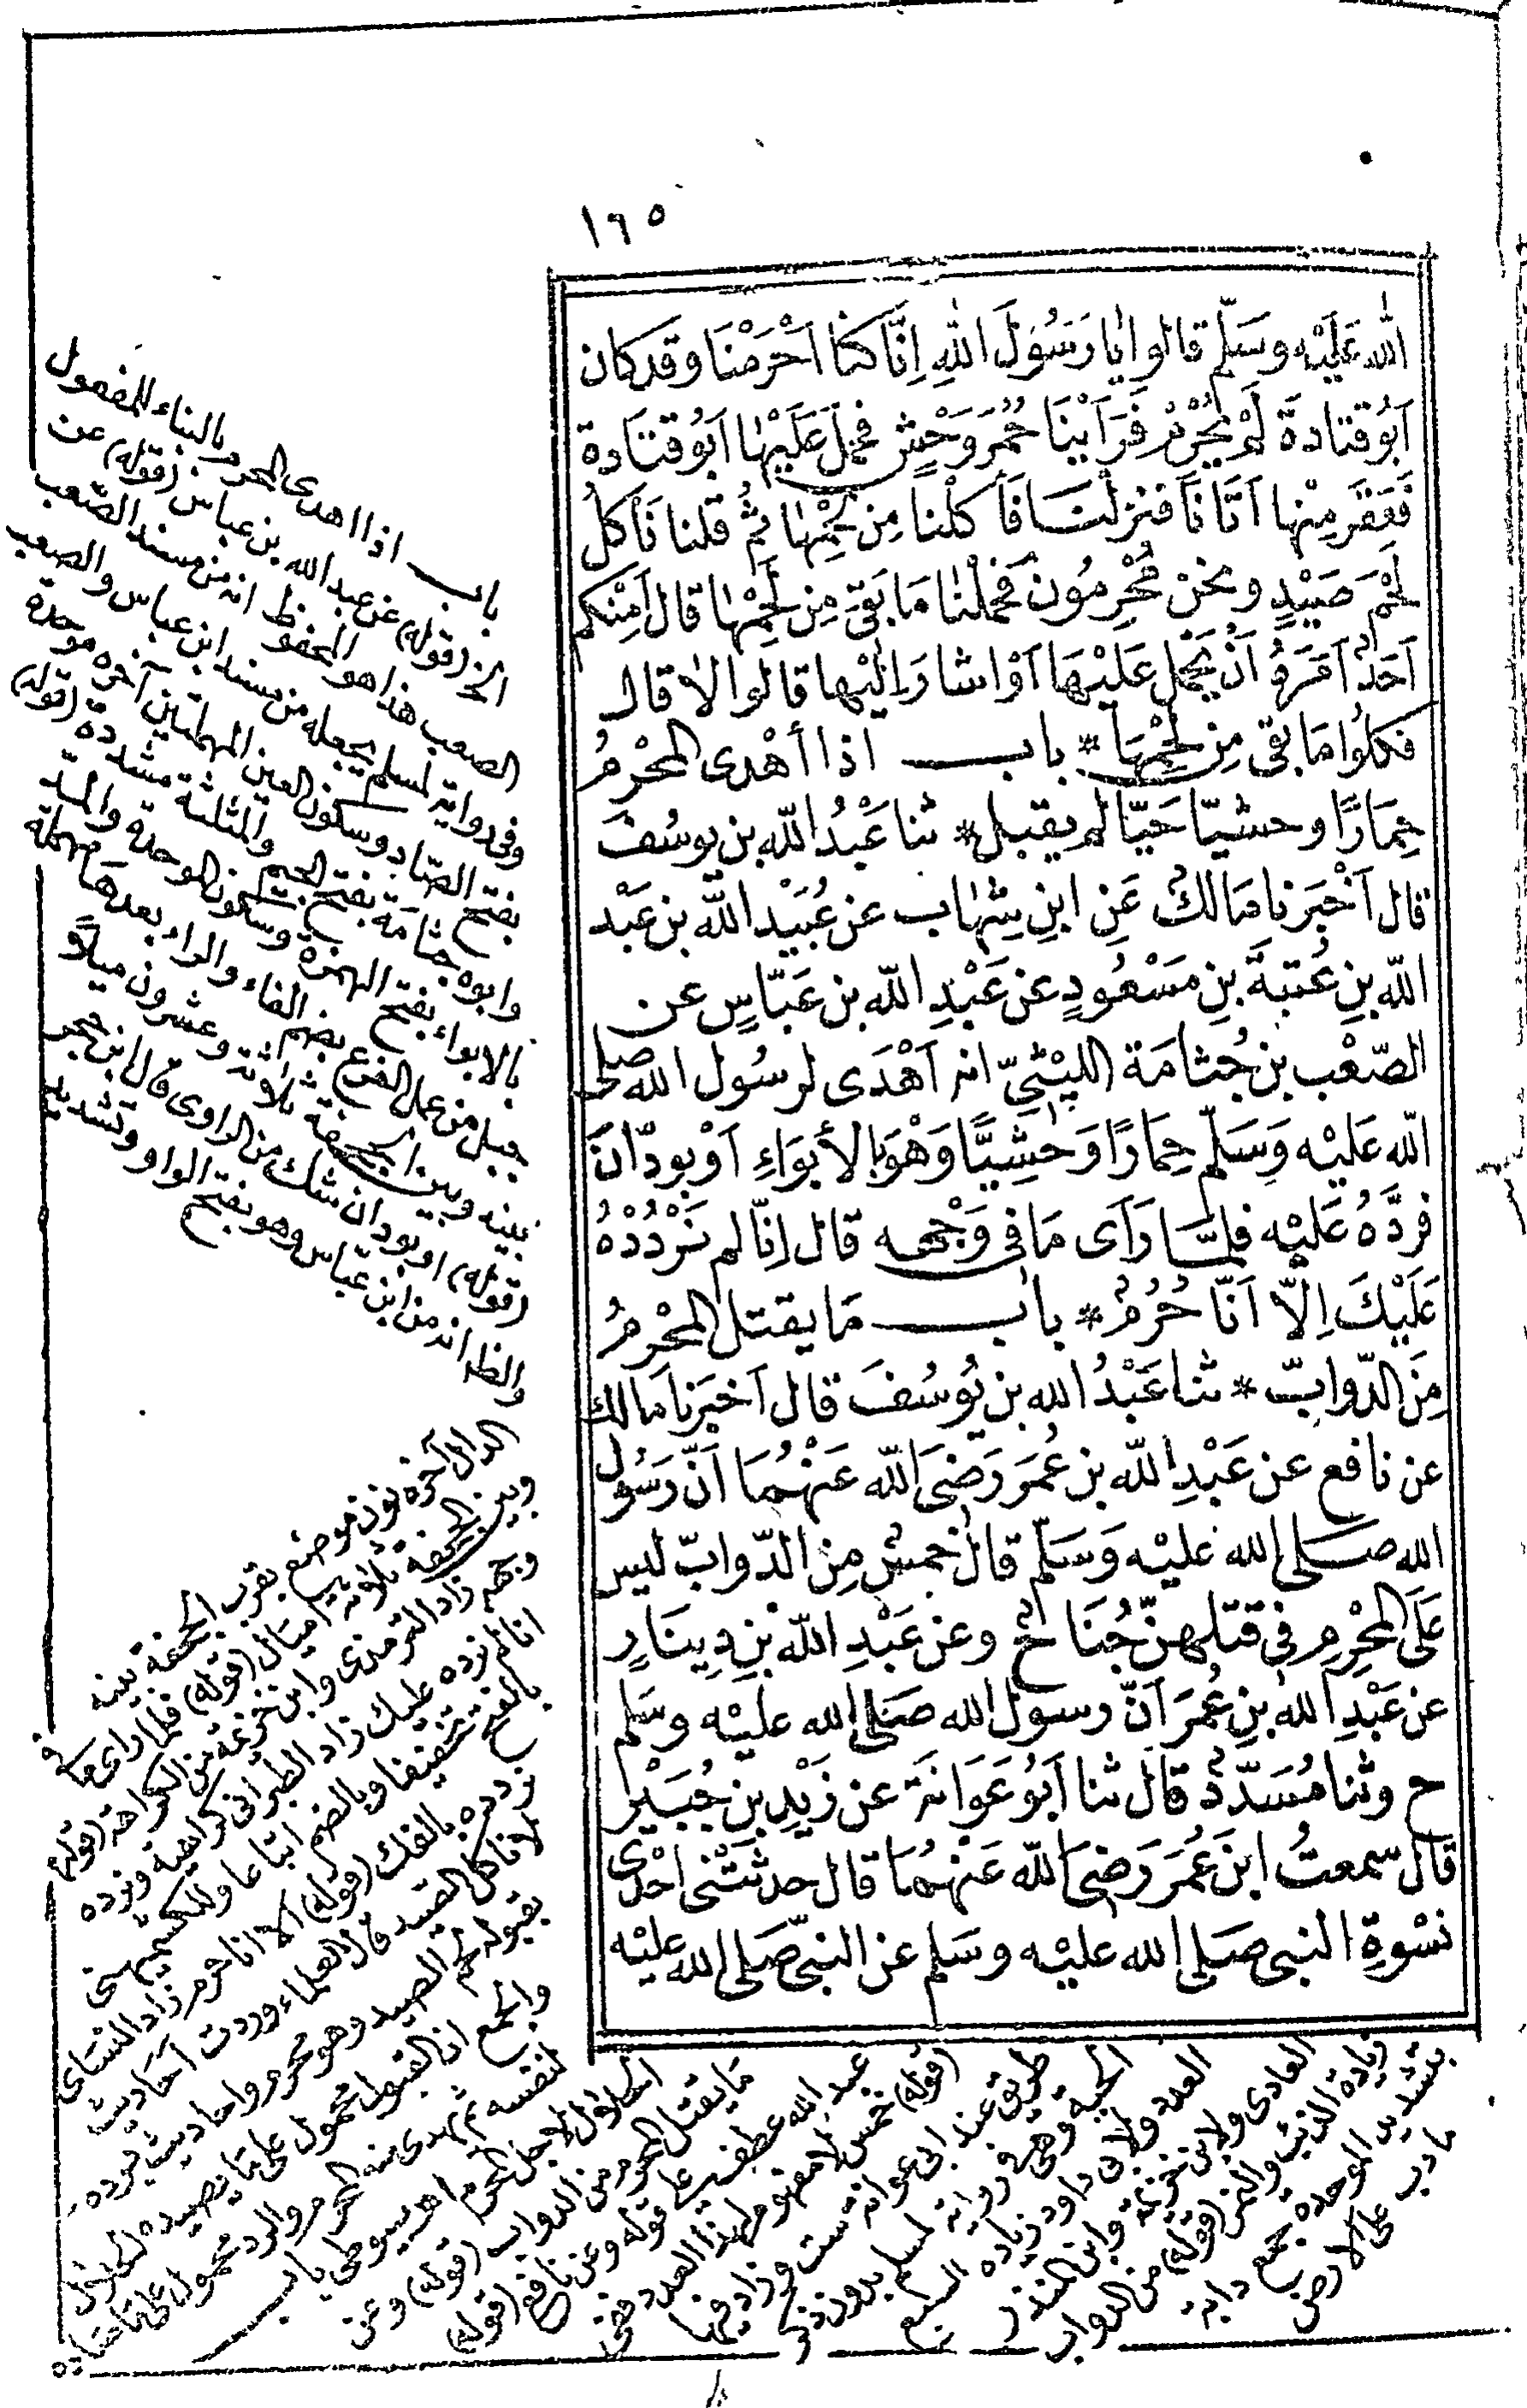 ١٦٥
الله عَلَيْه وسَلّم قالوا يا رَسُولَ اللهِ اِنّا كنا اَحْرَمْنَا وقدكان
اَبُو قتادةَ لَمْ يُحْرِمْ فَرَاَيْنَا حُمُرَ وَحْشٍ فحمَلَ عَلَيْهَا اَبُو قتَادة
فَعَقَرَ مِنْهَا اَتَانًا فنزلنَا فَاَكلْنا مِن لحْمِهَا ثُم قلنا نَاكلُ
لَحْمَ صَيْدٍ ونحن مُحْرِمُون فحمَلْنا مَا بَقىَ مِن لَحْمِهَا قال اَمِنْكم
اَحَدٌ اَمَرَهُ اَنْ يَحْمِل عَلَيْهَا اَوْ اشارَ اِليْها قالوا لا قال
فكلُوا مَا بَقى مِن لحْمِهَا * باب اذا أهْدى المحْرِمُ
حِمَارًا وحشيّا حَيّا لم يقبل * ثنا عَبْدُ اللّه بن يوسُفَ
قال اَخْبَرنا مَالكٌ عَنِ ابنِ شِهَاب عن عُبَيْد اللّه بن عَبْد
اللّه بنِ عُتبَةَ بنِ مَسْعُودٍ عن عَبْدِ اللّه بن عَبّاسٍ عن
الصّعْب بن جُثامَة اللّيْثيّ انه اَهْدَى لرسُول الله صلى
اللّه عَليْه وَسَلّم حِمَارًا وَحْشِيًّا وَهْوَ بالأبوَاءِ اَوْ بودّانَ
فردَّهُ عَليْه فلمَّا رَاَى مَا فى وَجْهه قال اِنّا لم نَرْدُدْهُ
عَلَيْكَ اِلّا اَنّا حُرُمٌ * باب مَا يقتل المحْرِمُ
مِنَ الدّوابّ * ثنا عَبْدُ الله بن يُوسُفَ قال اَخبَرنا مَالك
عن نافع عن عَبْدِ اللّه بن عُمَرَ رَضىَ اللّه عَنْهُمَا اَنّ رَسُول
الله صَلى الله عليْه وَسَلّم قال خمسٌ مِن الدّوابّ ليس
عَلَى المحْرِمِ فى قتلهنّ جُنَاحٌ وعن عَبْدِ اللّه بنِ دِينَارٍ
عن عَبْدِ الله بنِ عُمَرَ اَنّ رسول الله صَلى الله عليْه وسَلم
ح وثنا مُسَدّدٌ قال ثنا اَبُو عَوَانَة عن زَيْدِ بن جُبَيْر
قال سمعتُ ابنَ عُمَرَ رَضىَ اللّه عَنهُمَا قال حدثتْنى احْدى
نسْوةِ النبى صَلى الله عليْه وسَلم عن النبىّ صَلى الله عليْه
باب اذا اهدى المحرم بالبناء للمفعول
الخ (قوله) عن عبد الله بن عباس (قوله) عن
الصعب هذا هو المحفوظ انه من مسند الصّعب
وفى رواية لمسلم يجعله من مسند ابن عباس والصعب
بفتح الصّاد وسكون العين المهملتين آخره موحدة
وابوه جثامة بفتح الجيم والمثلثة مشددة (قوله)
بالابواء بفتح الهمزة وسكون الموحدة والمد
جبل من عمل الفرع بضم الفاء والراء بعدها مهملة
بينه وبين الجحفة ثلاثة وعشرون ميلاً
(قوله) او بودان شك من الراوى قال ابن حجر
والظ انه من ابن عبّاس وهو بفتح الواو وتشديد
الدال آخره نون موضع بقرب الجحفة بينه
وبين الجحفة ثلاثة اميال (قوله) فلما راى ما فى
وجهه زاد الترمذى وابن خزيمة من الكراهة (قوله)
انا لم نرده عليك زاد الطبرانى كراهية ونرده
بالفتح تخفيفا وبالضم اتباعا وللكشميهنى
نردده بالفك (قوله) الا انا حرم زاد النسَاى
لا ناكل الصيد قال العلماء وردت احاديث
بقبوله لحم الصيد وهو محرم واحاديث برده
والجمع ان القبول محمول على ما يصيده الحلال
لنفسه ثم يهدى منه للمحرم والرد محمول على ما صاده
الحلال لاجل المحرم اهـ سيوطى باب
ما يقتل المحرم من الدواب (قوله) وعن
عبد الله عطف على قوله وعن نافع (قوله)
(قوله) خمس لا مفهوم لهذا العدد ففى
طريق عند ابى عوانة ست وزاد فيها
الحية وهى فى رواية لمسلم بدون ذكر
العدد ولابى داود زياده السبع
العادى ولابن خزيمة وابن المنذر
زيادة الذئب والنمر (قوله) من الدواب
بتشديد الموحدة جمع دابة
ما دب على الارض